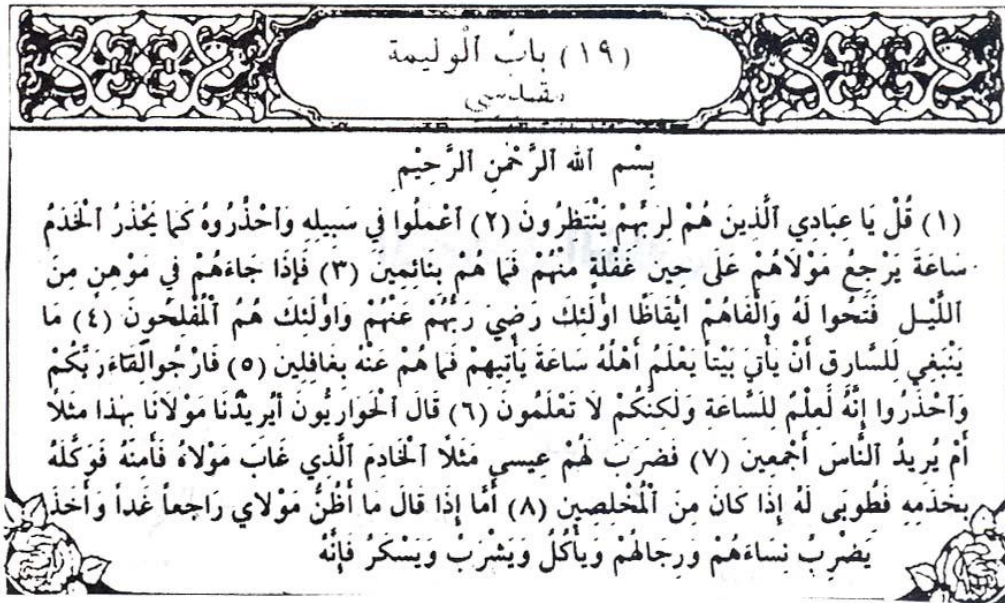 (١٩) بابُ ٱلْوليمة
مقدسي
بِسْمِ ٱلله ٱلرَّحْمٰنِ ٱلرَّحِيْمِ
(١) قُلْ يَا عِبَادِي ٱلَّذِينَ هُمْ لِرَبِّهِمْ يَنْتَظِرُونَ (٢) ٱعْمَلُوا فِي سَبِيلِهِ وَٱحْذَرُوهُ كَمَا يَحْذَرُ ٱلْخَدَمُ
سَاعَةَ يَرْجِعُ مَوْلَاهُمْ عَلَى حِينِ غَفْلَةٍ مِنْهُمْ فَمَا هُم بِنَائِمِينَ (٣) فَإِذَا جَاءَهُمْ فِي مَوْهِنٍ مِنَ
ٱللَّيْلِ فَتَحُوا لَهُ وَٱلْفَاهُمْ ايْقَاظًا اوْلَئِكَ رَضِيَ رَبُّهُمْ عَنْهُمْ وَاوْلَئِكَ هُمُ ٱلْمُفْلِحُونَ (٤) مَا
يَنْبَغِي لِلسَّارِقِ أَنْ يَأْتِيَ بَيْتاً يَعْلَمُ أَهْلُهُ سَاعَةَ يَأْتِيهِمْ فَمَا هُمْ عَنْهُ بِغَافِلِينَ (٥) فَارْجُوا لِقَاءَ رَبِّكُمْ
وَٱحْذَرُوا إِنَّهُ لَعِلْمٌ لِلسَّاعَةِ وَلَكِنَّكُمْ لَا تَعْلَمُونَ (٦) قَالَ ٱلْحَوَارِيُّونَ أَيُرِيدُنَا مَوْلَانَا بِهَذَا مثلًا
أَمْ يُرِيدُ ٱلنَّاسَ أَجْمَعِينَ (٧) فَضَرَبَ لَهُمْ عِيسى مَثَلًا ٱلْخَادِمَ ٱلَّذِي غَابَ مَوْلَاهُ فَأَمِنَهُ فَوَكَّلَهُ
بِخَدَمِهِ فَطُوبَى لَهُ إِذَا كَانَ مِنَ ٱلْمُخْلِصِينِ (٨) أَمَّا إِذَا قَالَ مَا أَظُنُّ مَوْلَاي رَاجعاً غَداً وَأَخَذَ
يَضْرِبُ نِسَاءَهُمْ وَرِجَالَهُمْ وَيَأْكُلُ وَيَشْرَبُ وَيَسْكَرُ فَإِنَّهُ